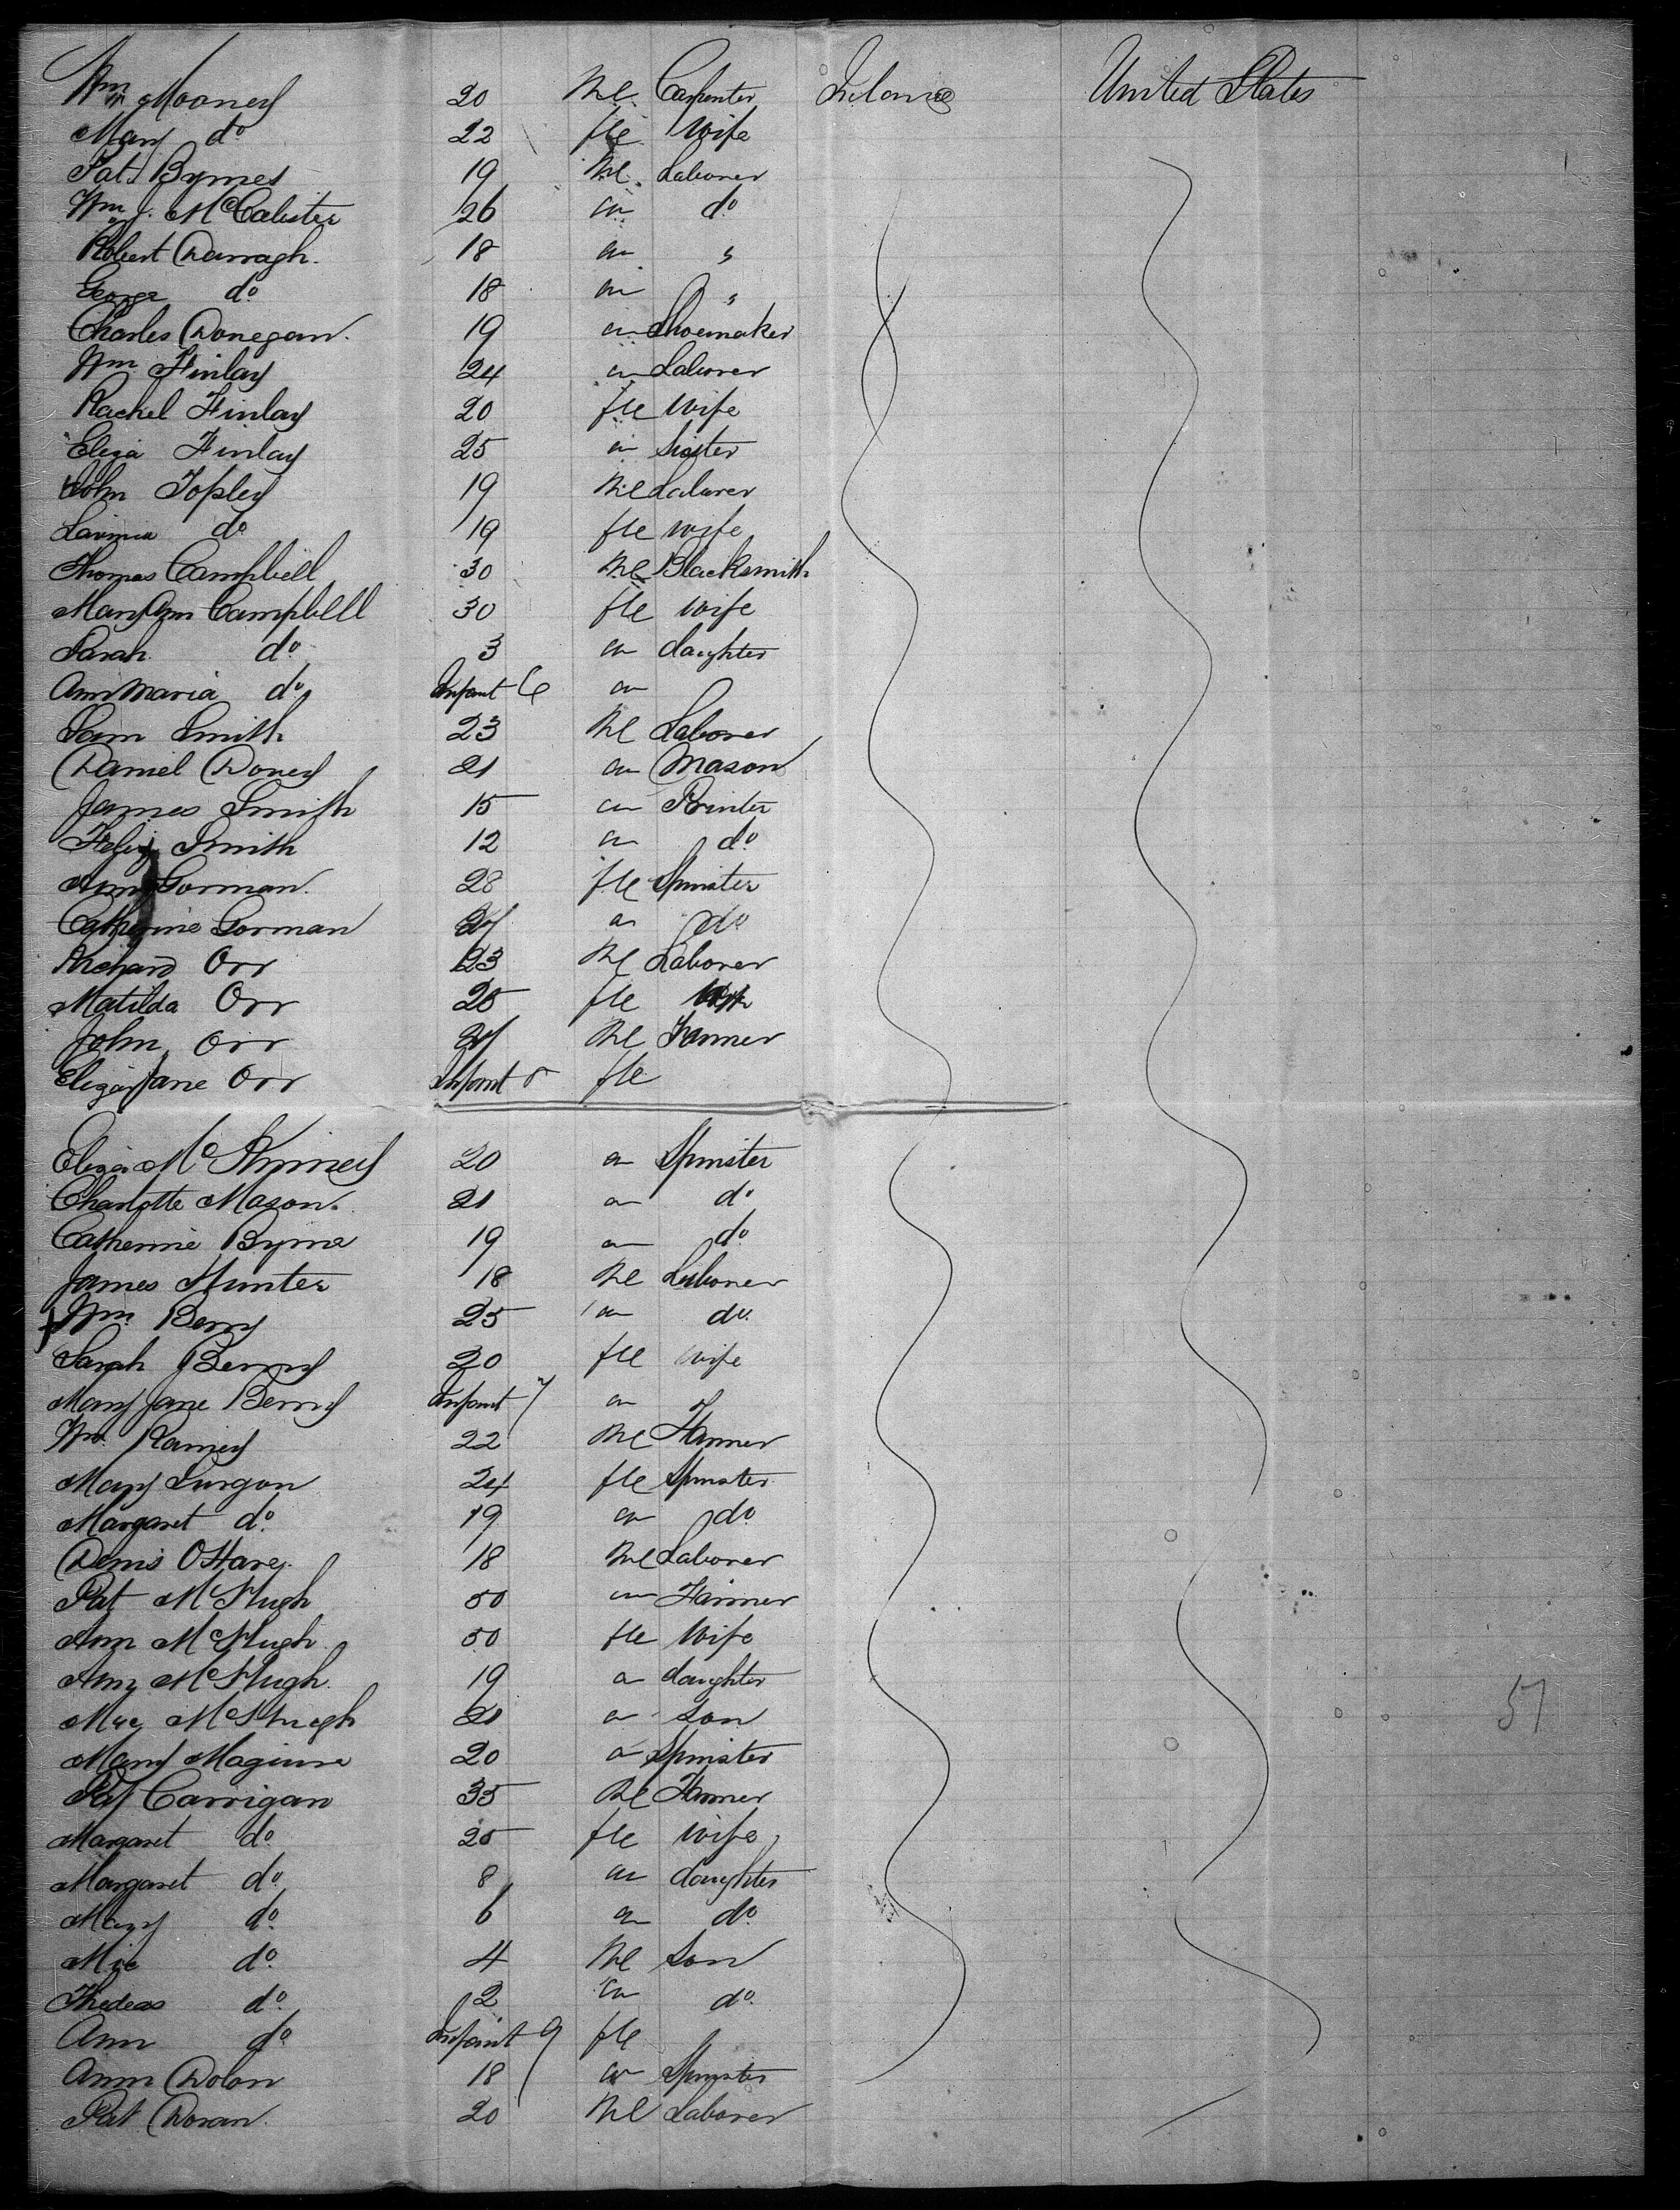 Wm Mooney 20 Me. Carpenter Ireland United States
Mary do 22 fle wife
Pat. Byrnes 19 Me. Laborer
Wm J. McCalister 26 " do
Robert Darragh. 18 " "
George do 18 " "
Charles Donegan. 19 " Shoemaker
Wm Finlay 24 " Laborer
Rachel Finlay 20 fle wife
Eliza Finlay 25 " sister
John Topley 19 Me Laborer
Lavinia do 19 fle wife
Thomas Campbell 30 Me Blacksmith
Mary Ann Campbell 30 fle wife
Sarah do 3 " daughter
Ann Maria do Infant 6 "
Sam Smith 23 Me Laborer
Daniel Doney 21 " Mason
James Smith 15 " Printer
Felix Smith 12 " do
Ann Gorman. 28 fle Spinster
Catherine Gorman 24 " do
Richard Orr 23 Me Laborer
Matilda Orr 25 fle wife
John Orr 24 Me Farmer
Eliza Jane Orr Infant 5 fle
Eliza Mc 20 " Spinster
Charlotte Mason. 21 " do
Catherine Byrne 19 " do
James Hunter 18 Me Laborer
Wm Berry 25 " do
Sarah Berry 20 fle wife
Mary Jane Berry Infant 7 "
Wm Ramey 22 Me Farmer
Mary Lurgan 24 fle Spinster
Margaret do 19 " do
Denis O'Hare. 18 Me Laborer
Pat McHugh 50 " Farmer
Ann McHugh 50 fle wife
Ann McHugh 19 " daughter
McHugh 21 " son
Mary Maguire 20 " Spinster
Pat Carrigan 35 Me Farmer
Margaret do 25 fle wife
Margaret do 8 " daughter
Mary do 6 " do
Mic do 4 Me son
do 2 " do
Ann do Infant 9 fle
Ann Dolan 18 " Spinster
Pat Doran. 20 Me Laborer
57